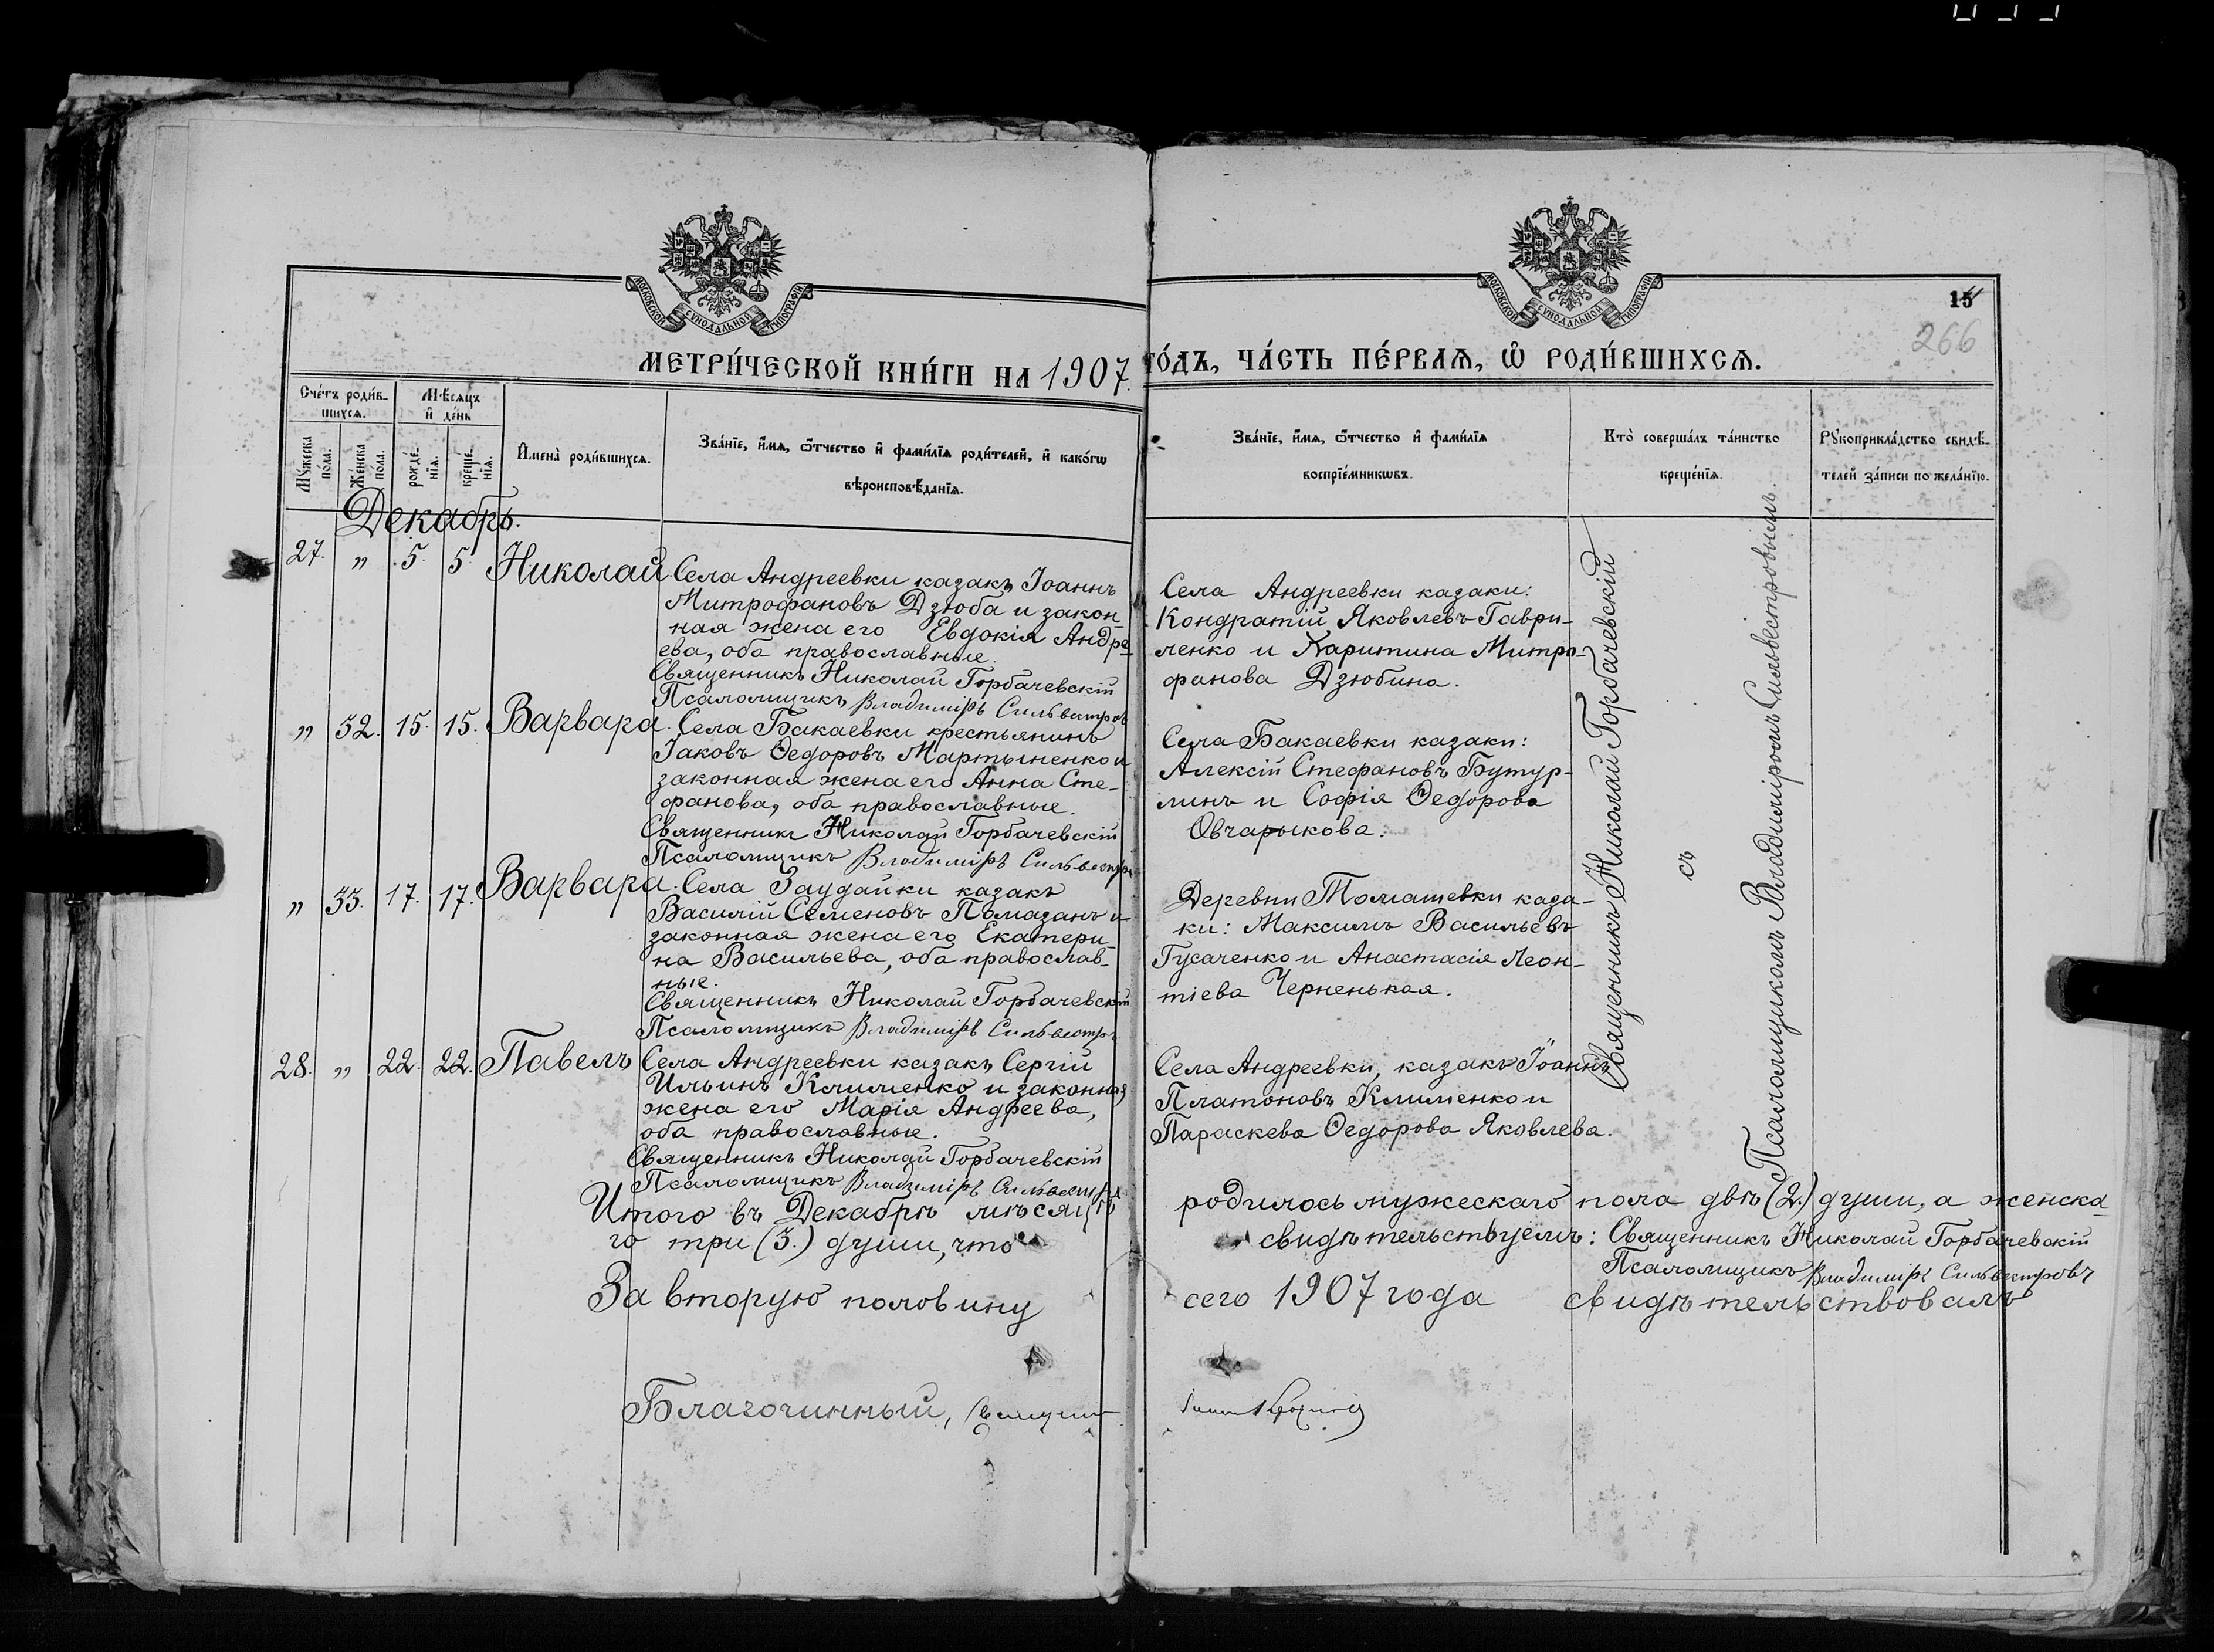 МОСКОВСКОЙ СУНОДАЛЬНОЙ ТИПОГРАФІИ
МОСКОВСКОЙ СУНОДАЛЬНОЙ ТИПОГРАФІИ
15
266
МЕТРИ́ЧЕСКОЙ КНИ́ГИ НА 1907 ГО́ДЪ, ЧА́СТЬ ПЕ́РВАѦ, Ѽ РОДИ́ВШИХСѦ.
Сче́тъ роди́в-
шихсѧ.
Мѣ́сѧцъ
и҆ де́нь
Мꙋ́жеска
по́ла.
Же́нска
по́ла.
рожде́-
нїѧ.
креще́-
нїѧ.
И҆мена̀ роди́вшихсѧ.
Зва́нїе, и҆́мѧ, ѻ҆́тчество и҆ фами́лїѧ роди́телей, и҆ како́гѡ
вѣроисповѣ́данїѧ.
Зва́нїе, и҆́мѧ, ѻ҆́тчество и҆ фами́лїѧ
воспрїе́мникѡвъ.
Кто̀ соверша́лъ та́инство
креще́нїѧ.
Рꙋкоприкла́дство свидѣ́-
телей за́писи по жела́нїю.
Декабрь.
27. „ 5. 5. Николай
Села Андреевки казакъ Іоаннъ
Митрофановъ Дзюба и закон-
ная жена его Евдокія Андре-
ева, оба православные.
Священникъ Николай Горбачевскій
Псаломщикъ Владиміръ Сильвестров
Села Андреевки казаки:
Кондратій Яковлевъ Гаври-
ленко и Харитина Митро-
фанова Дзюбина.
„ 32. 15. 15. Варвара.
Села Бакаевки крестьянинъ
Іаковъ Ѳедоровъ Мартыненко и
законная жена его Анна Сте-
фанова, оба православные.
Священникъ Николай Горбачевскій
Псаломщикъ Владиміръ Сильвестро
Села Бакаевки казаки:
Алексій Стефановъ Бутур-
линъ и Софія Ѳедорова
Овчарыкова.
„ 33. 17. 17. Варвара.
Села Заудайки казакъ
Василій Семеновъ Помазанъ и
законная жена его Екатери-
на Васильева, оба православ-
ные.
Священникъ Николай Горбачевскій
Псаломщикъ Владиміръ Сильвестр
Деревни Томашевки каза-
ки: Максимъ Васильевъ
Гусаченко и Анастасія Леон-
тіева Черненькая.
28. „ 22. 22. Павелъ
Села Андреевки казакъ Сергій
Ильинъ Клименко и законная
жена его Марія Андреева,
оба православные.
Священникъ Николай Горбачевскій
Псаломщикъ Владиміръ Сильвестро
Села Андреевки, казакъ Іоаннъ
Платоновъ Клименко и
Параскева Ѳедорова Яковлева.
Священникъ Николай Горбачевскій
съ
Псаломщикомъ Владиміромъ Сильвестровымъ.
Итого въ Декабрѣ мѣсяцѣ родилось мужескаго пола двѣ (2.) души, а женска-
го три (3.) души, что свидѣтельствуемъ: Священникъ Николай Горбачевскій
Псаломщикъ Владиміръ Сильвестровъ
За вторую половину сего 1907 года свидѣтельствовалъ
Благочинный,